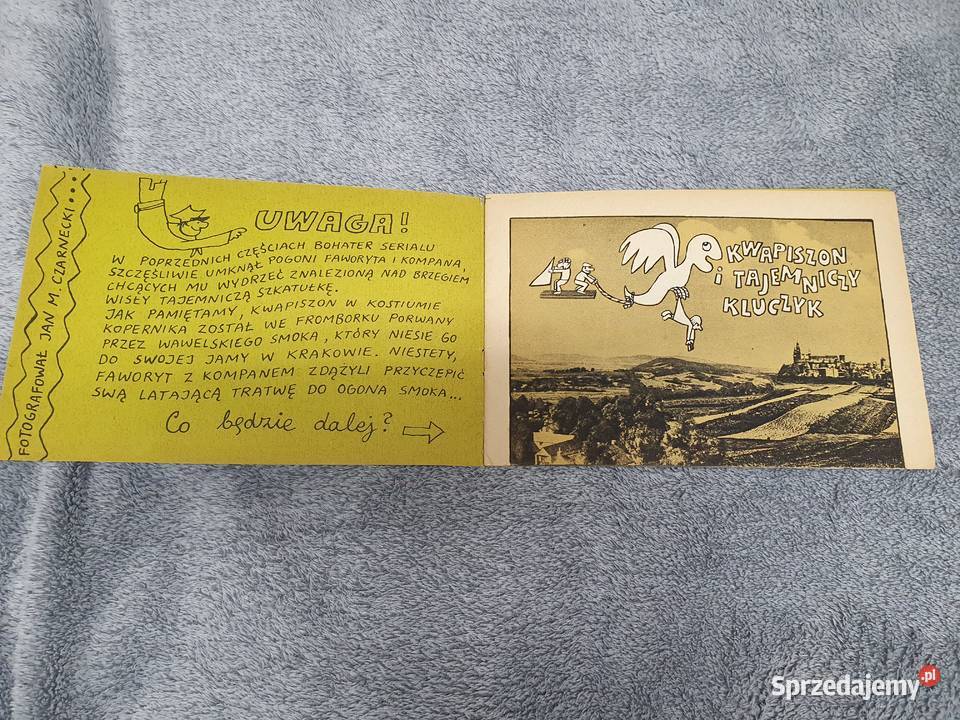 FOTOGRAFOWAŁ JAN M. CZARNECKI...
UWAGA!
W POPRZEDNICH CZĘŚCIACH BOHATER SERIALU
SZCZĘŚLIWIE UMKNĄŁ POGONI FAWORYTA I KOMPANA,
CHCĄCYCH MU WYDRZEĆ ZNALEZIONĄ NAD BRZEGIEM
WISŁY TAJEMNICZĄ SZKATUŁKĘ.
JAK PAMIĘTAMY, KWAPISZON W KOSTIUMIE
KOPERNIKA ZOSTAŁ WE FROMBORKU PORWANY
PRZEZ WAWELSKIEGO SMOKA, KTÓRY NIESIE GO
DO SWOJEJ JAMY W KRAKOWIE. NIESTETY,
FAWORYT Z KOMPANEM ZDĄŻYLI PRZYCZEPIĆ
SWĄ LATAJĄCĄ TRATWĘ DO OGONA SMOKA...
Co będzie dalej?
KWAPISZON
i TAJEMNICZY
KLUCZYK
Sprzedajemy.pl